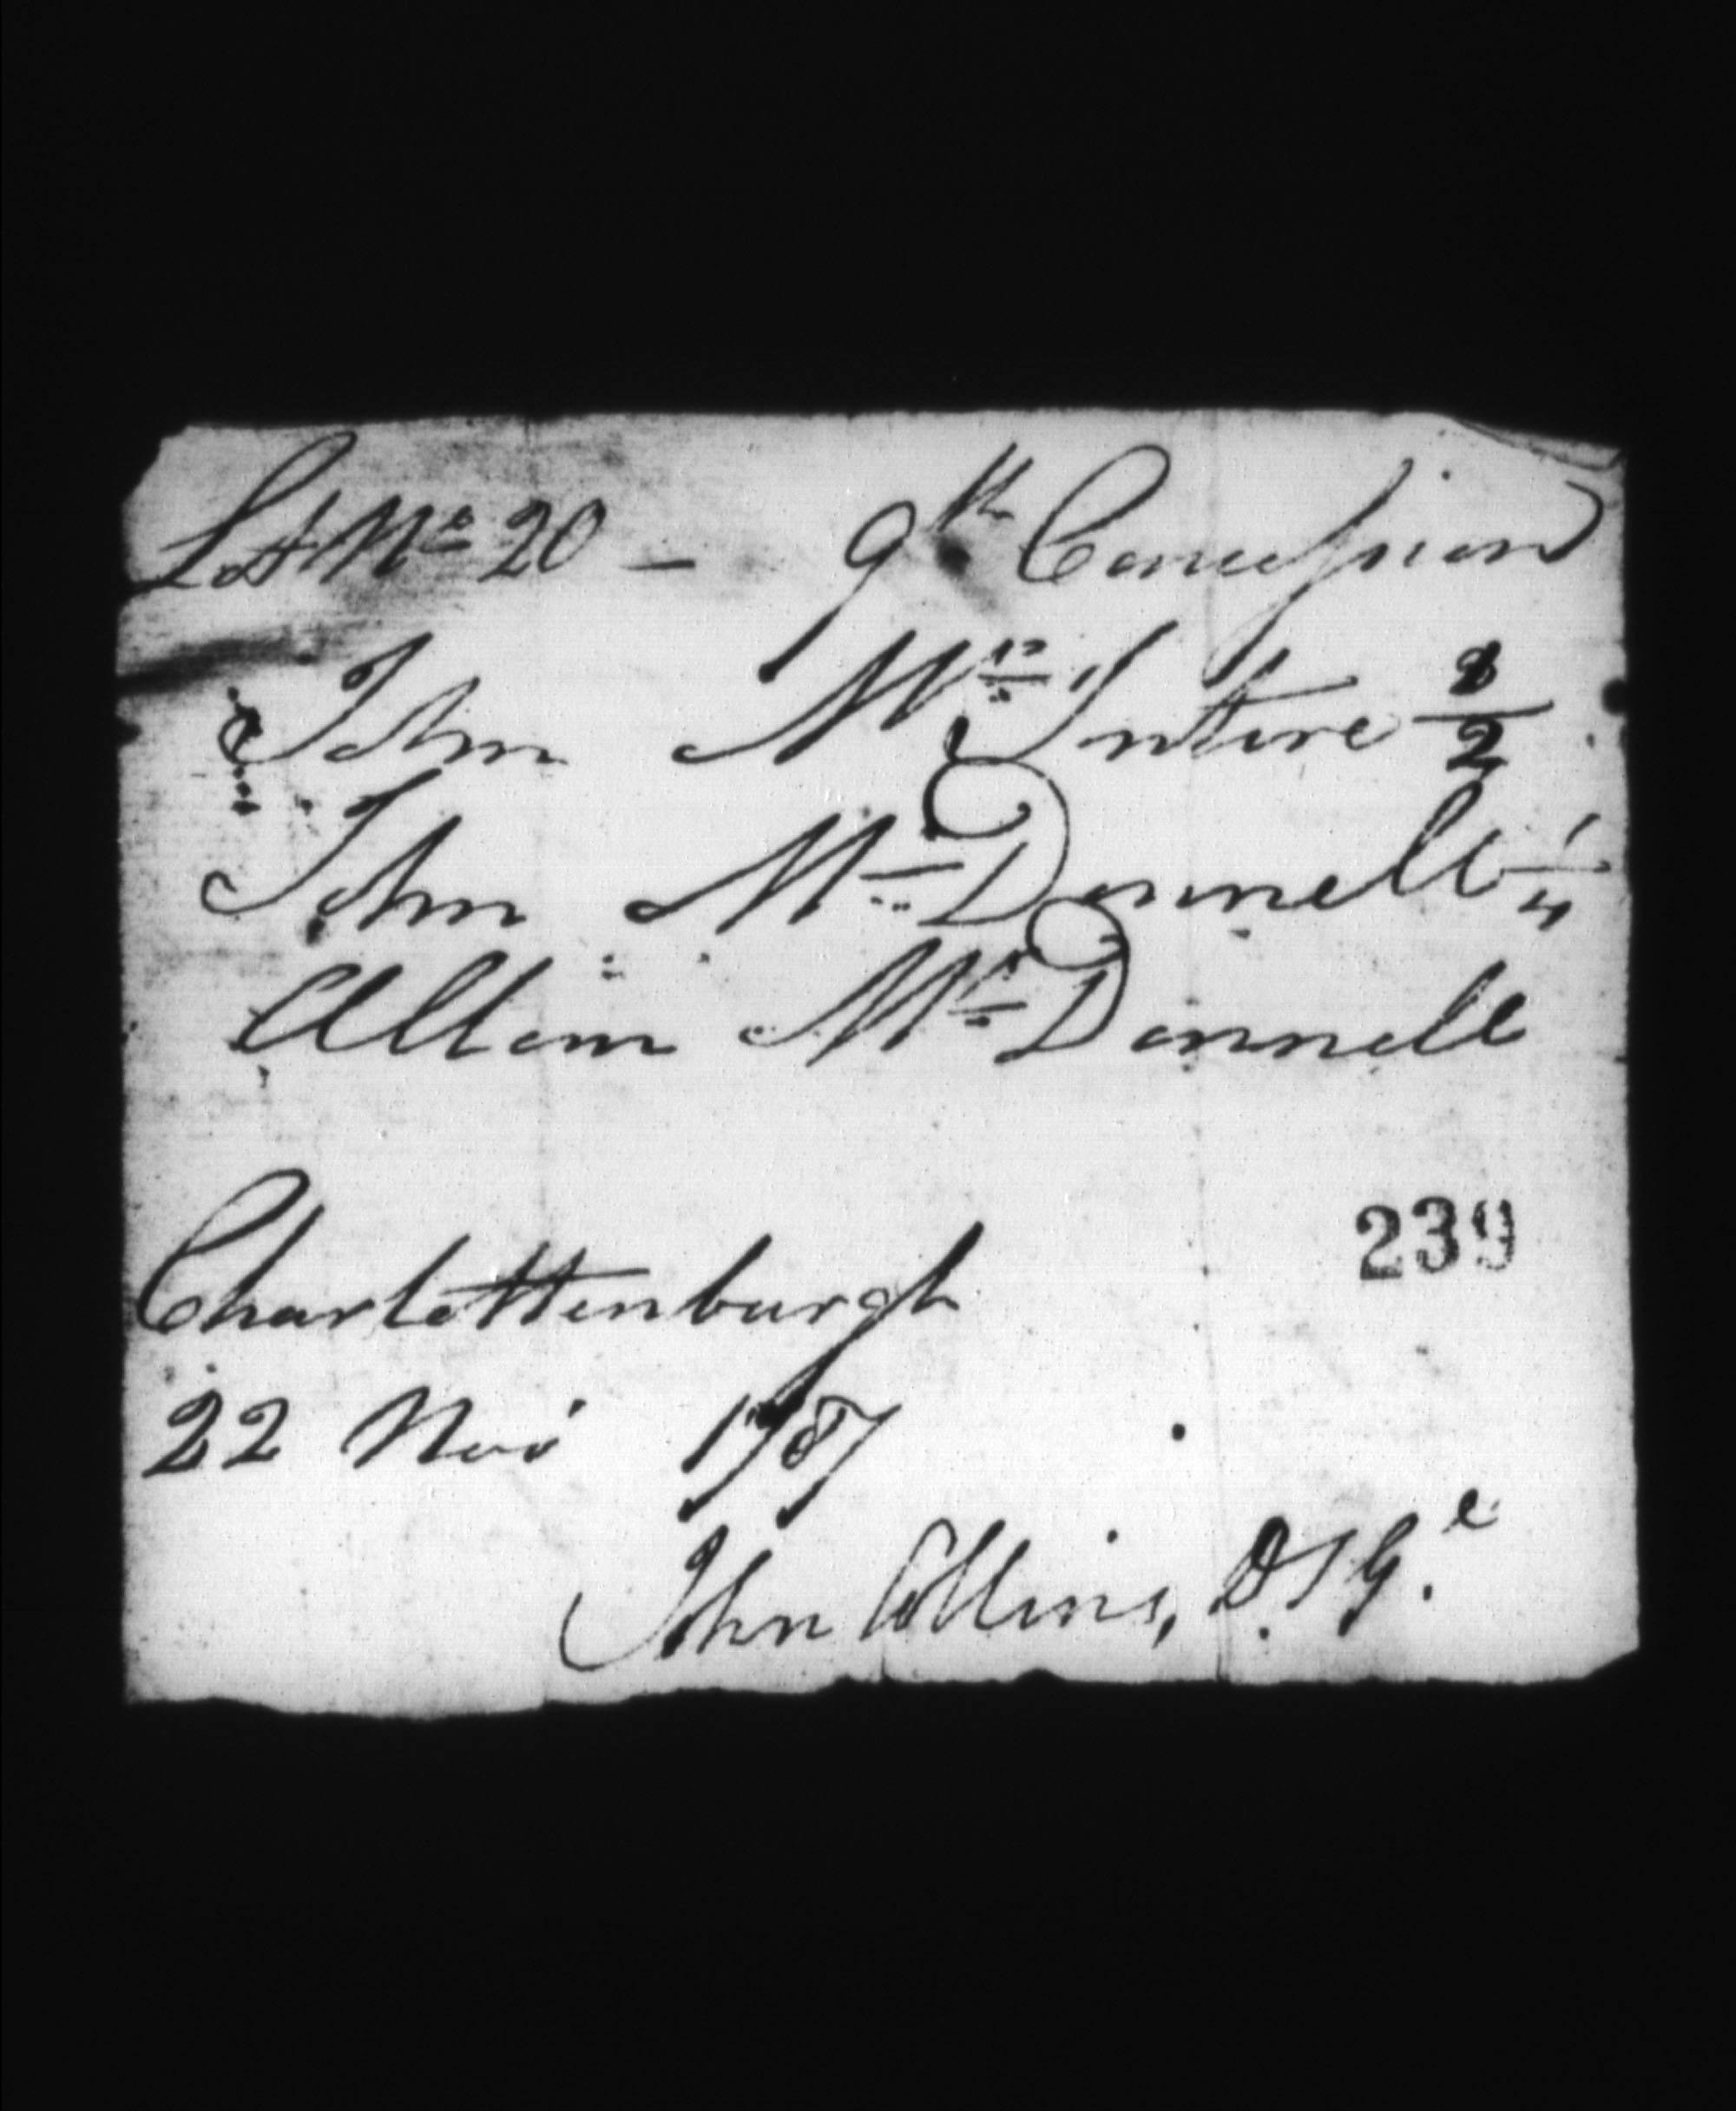 Lot No 20 - 9th Concession
John Mc Intire 1/2
John Mc Donnell 1/4
Allan Mc Donnell
239
Charlottenburgh
22 Nov 1787
John Collins, D.S.G.e